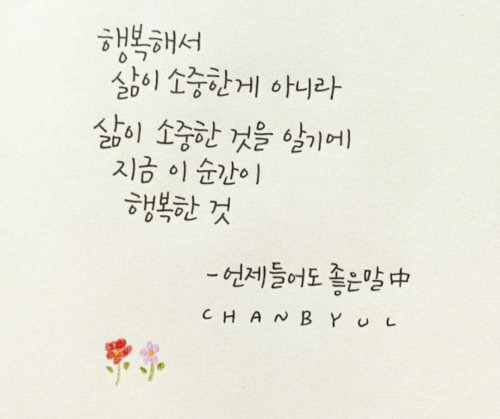 행복해서
삶이 소중한게 아니라
삶이 소중한 것을 알기에
지금 이 순간이
행복한 것
- 언제들어도 좋은말 中
CHANBYUL